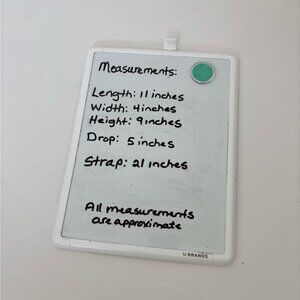 Measurements:
Length: 11 inches
Width: 4 inches
Height: 9 inches
Drop: 5 inches
Strap: 21 inches
All measurements
are approximate
U BRANDS